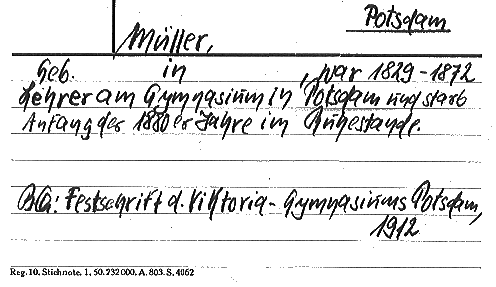 Potsdam
Müller,
Geb. in , war 1829-1872
Lehrer am Gymnasium in Potsdam und starb
Anfang der 1880er Jahre im Ruhestande.
BQ: Festschrift d. Viktoria-Gymnasiums Potsdam,
1912
Reg. 10. Stichnote. 1. 50. 732000. A. 803. S. 4062